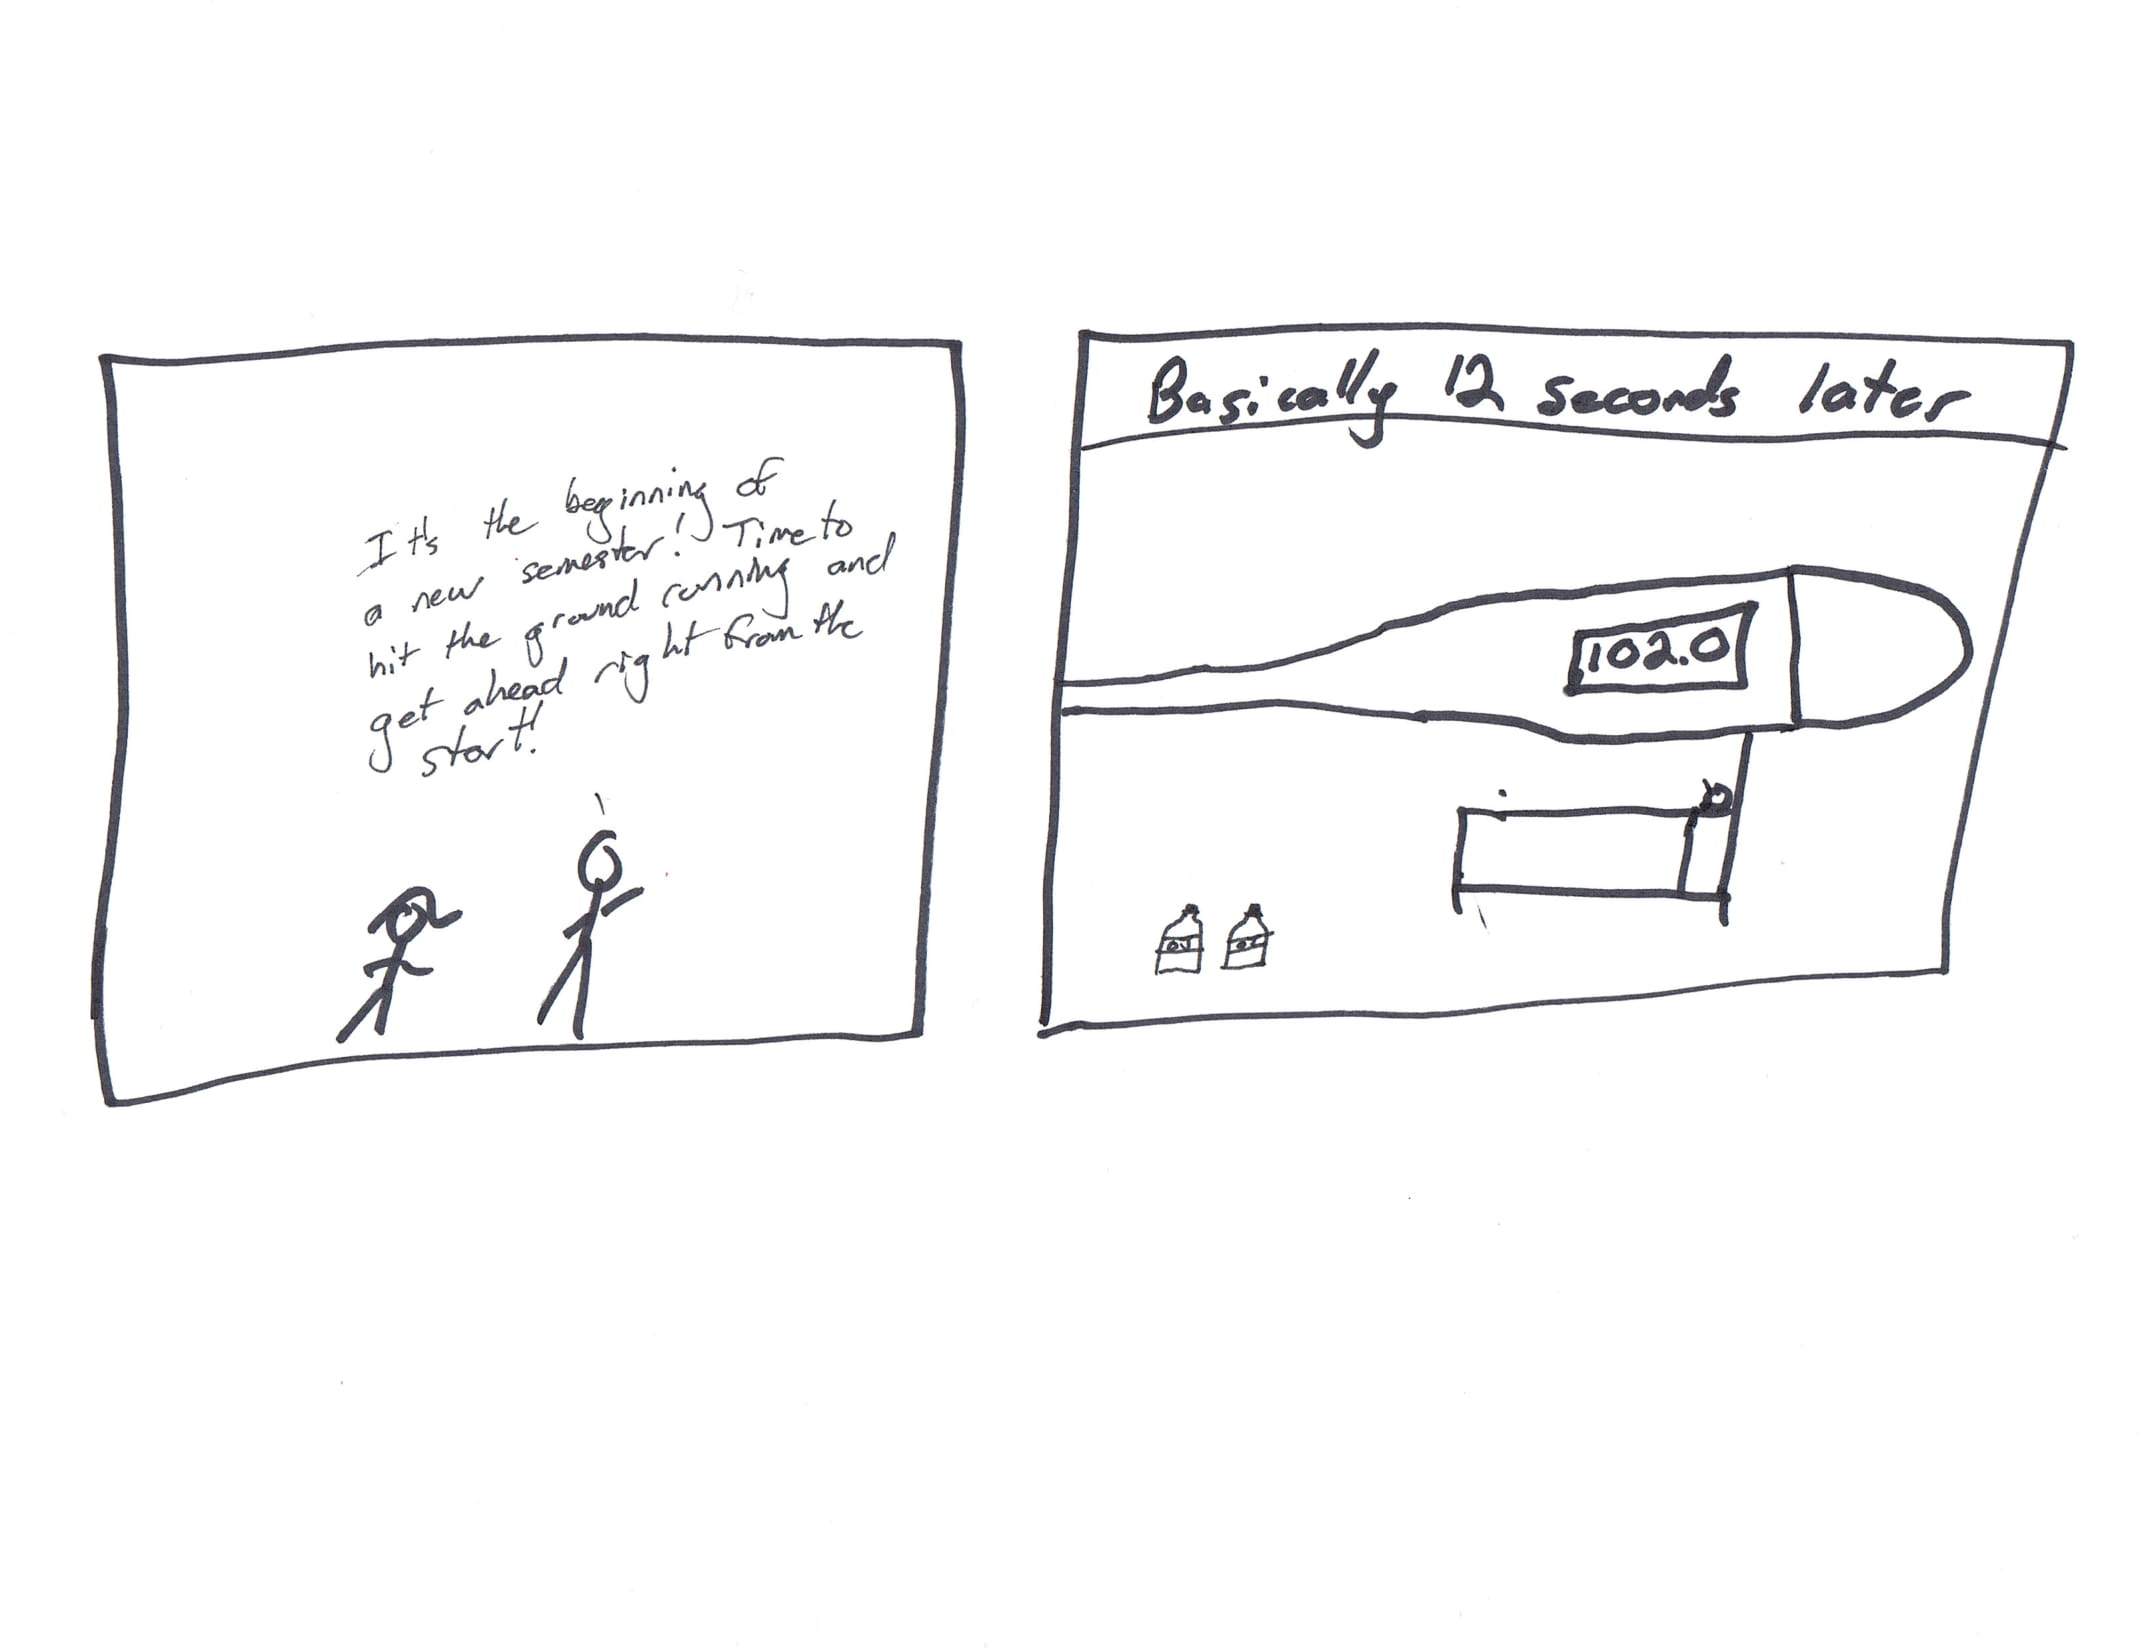 It's the beginning of
a new semester! Time to
hit the ground running and
get ahead right from the
start!
Basically 12 seconds later
102.0
OJ
OJ